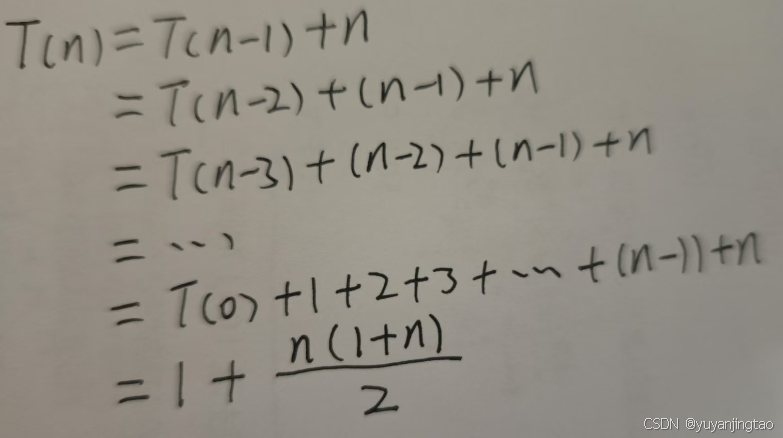 T(n) = T(n-1) + n
= T(n-2) + (n-1) + n
= T(n-3) + (n-2) + (n-1) + n
= ...
= T(0) + 1 + 2 + 3 + ... + (n-1) + n
= 1 + n(1+n)/2
CSDN @yuyanjingtao